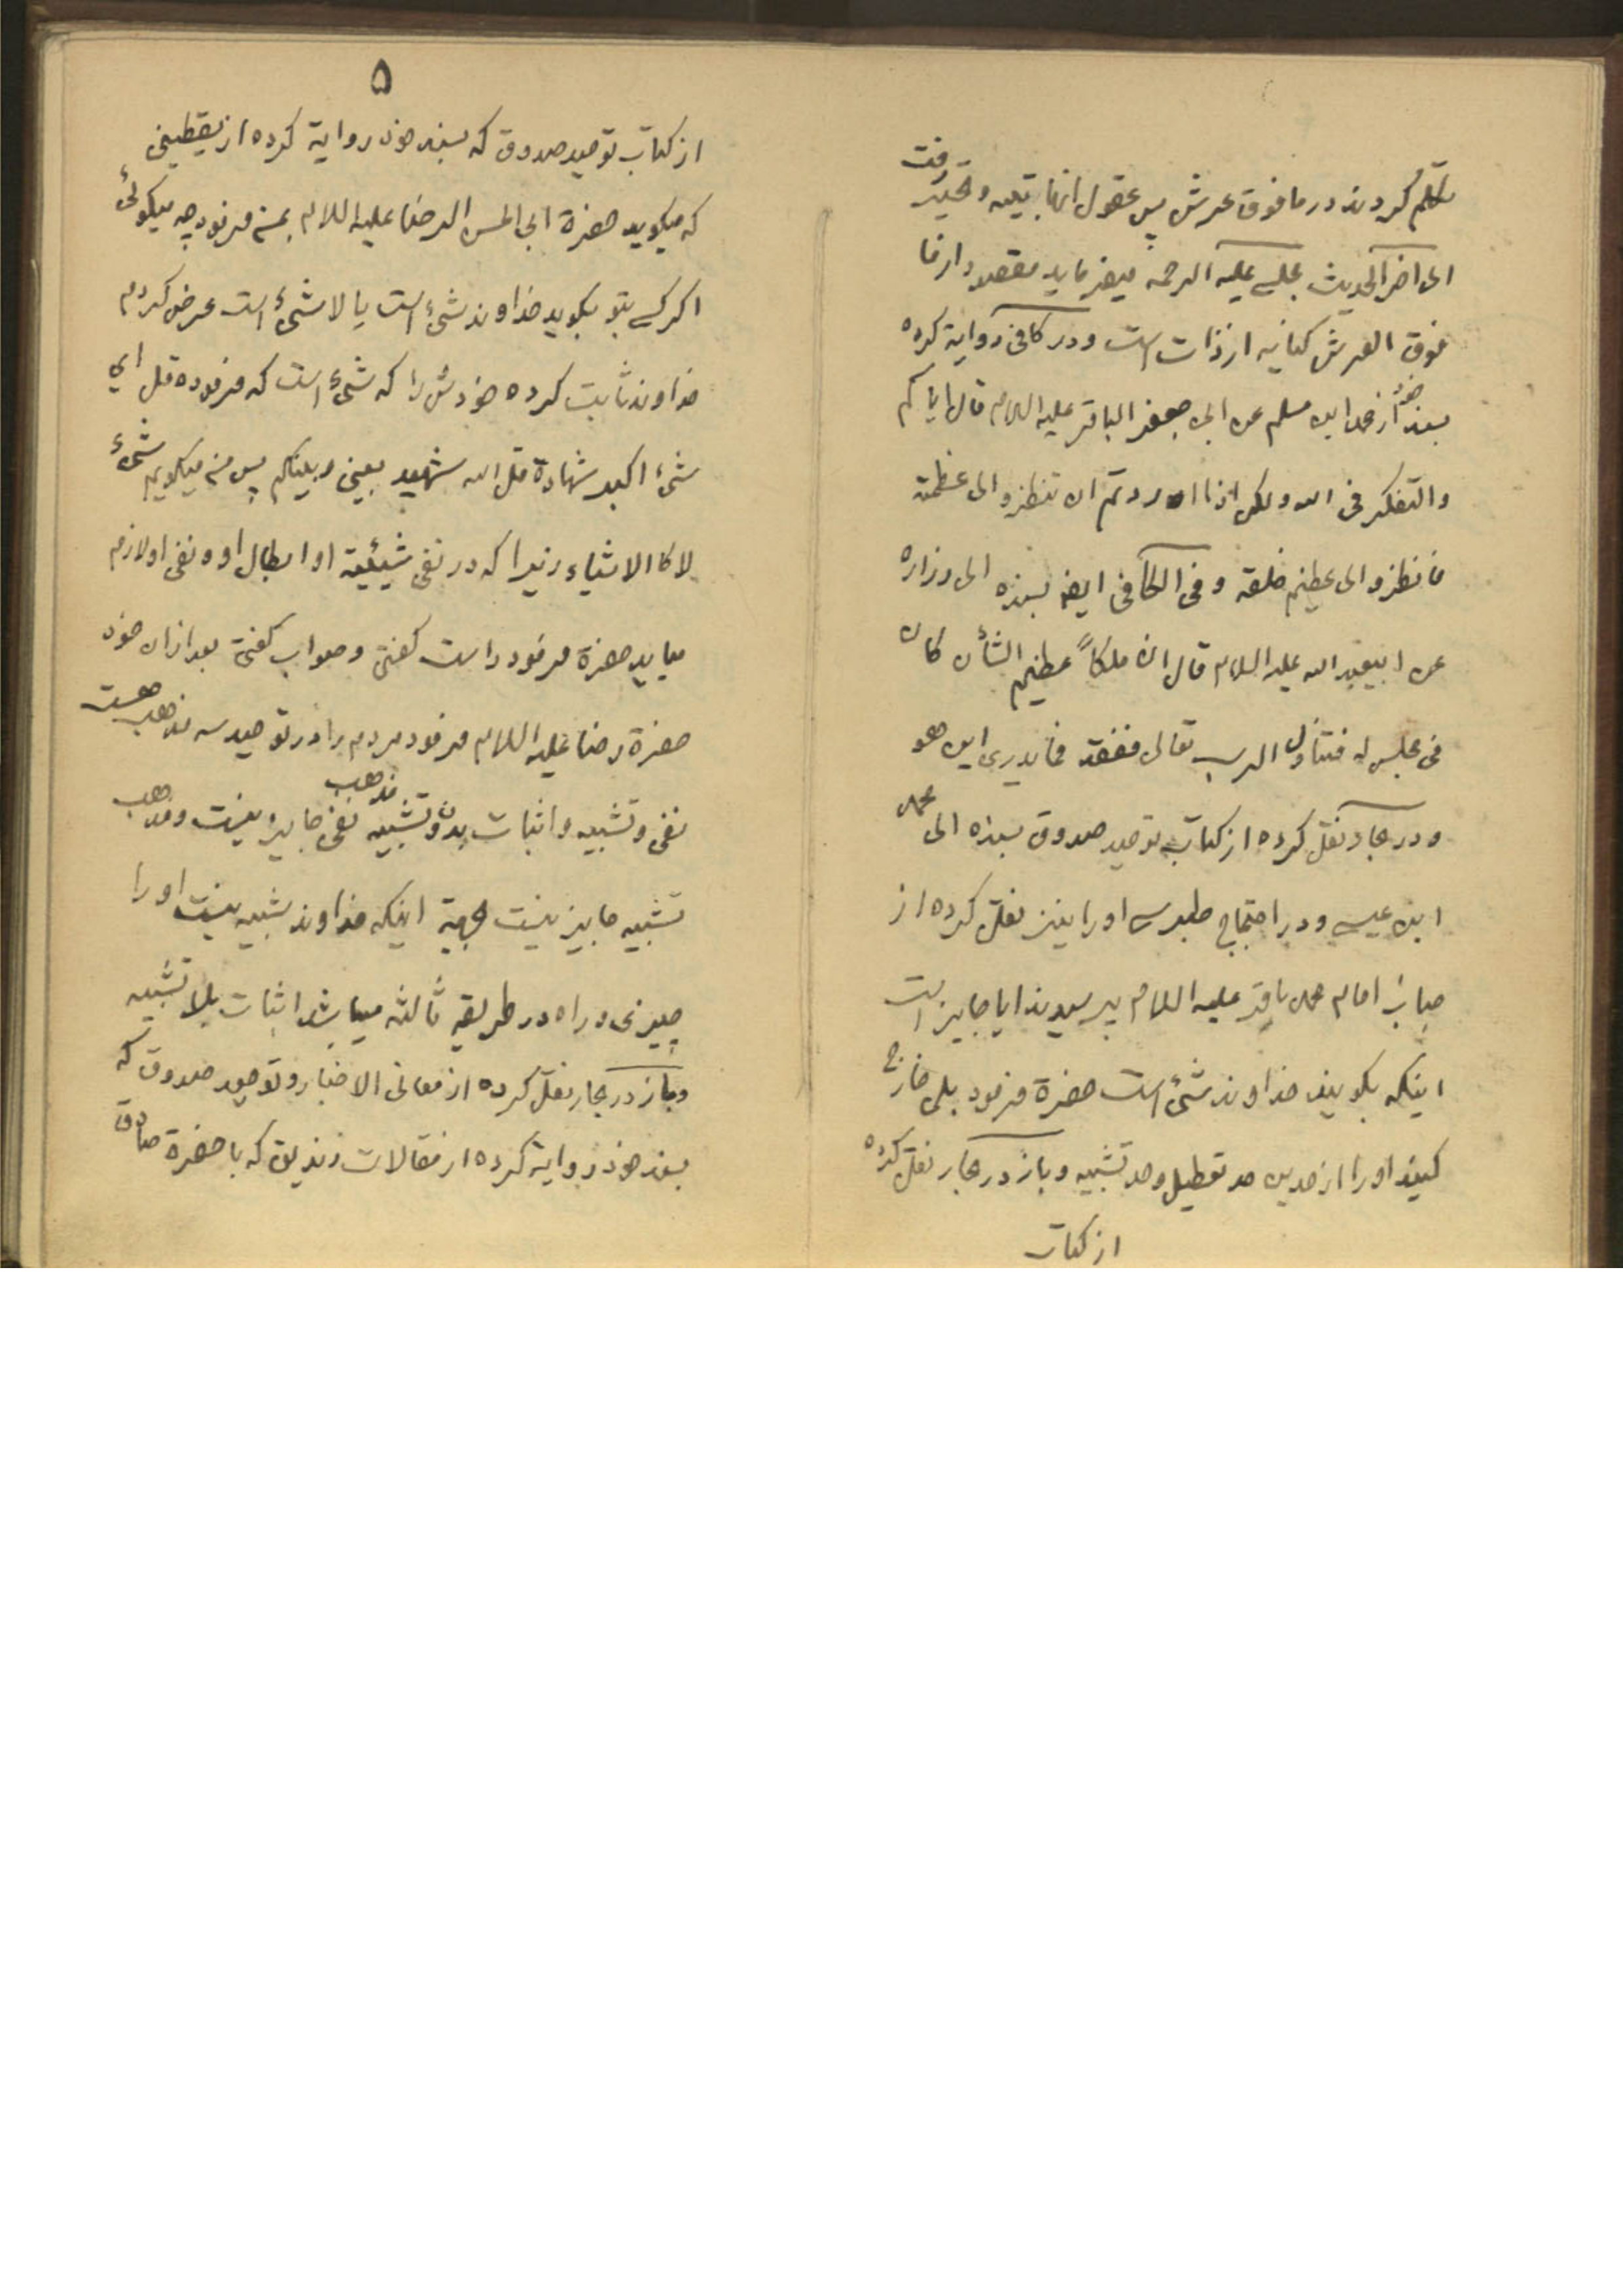 تکلم کردند در ما فوق عرش پس عقول انها بتیه و تحیر رفت
الی اخر الحدیث مجلسی علیه الرحمة میفرماید مقصود از ما
فوق العرش کنایه از ذات است و در کافی روایة کرده
بسند خود از محمد ابن مسلم عن ابی جعفر الباقر علیه السلام قال ایاکم
والتفکر فی الله ولکن اذا اردتم ان تنظروا الی عظمته
فانظروا الی عظیم خلقه و فی الکافی ایضا بسنده الی زراره
عن ابیعبد الله علیه السلام قال ان ملکاً عظیم الشأن کان
فی مجلس له فتناول الرب تعالی ففقد فما یدری این هو
و در بحار نقل کرده از کتاب توحید صدوق بسنده الی محمد
ابن عیسی و در احتجاج طبرسی او را نیز نقل کرده از
جناب امام محمد باقر علیه السلام پرسیدند ایا جایز است
اینکه بکویند خداوند شیء است حضرة فرمود بلی خارج
کنید او را از حدین حد تعطیل و حد تشبیه و باز در بحار نقل کرده
از کتاب
۵
از کتاب توحید صدوق که بسند خود روایة کرده از یقطینی
که میکوید حضرة ابی الحسن الرضا علیه السلام بمن فرمود چه میکوئی
اکر کسی بتو بکوید خداوند شیء است یا لا شیء است عرض کردم
خداوند ثابت کرده خودش را که شیء است که فرموده قل ای
شیء اکبر شهادة قل الله شهید بینی و بینکم پس من میکویم شیء
لا کالاشیاء زیرا که در نفی شیئیة او ابطال او و نفی او لازم
میاید حضرة فرمود راست کفتی و صواب کفتی بعد از ان خود
حضرة رضا علیه السلام فرمود مردم را در توحید سه مذهب هست
نفی و تشبیه و اثبات بدون تشبیه مذهب نفی جایز نیست و مذهب
تشبیه جایز نیست بجهة اینکه خداوند شبیه نیست او را
چیزی و راه در طریقه ثالثه میباشد اثبات بلا تشبیه
و باز در بحار نقل کرده از معانی الاخبار و توحید صدوق که
بسند خود روایة کرده از مقالات زندیق که با حضرة صادق